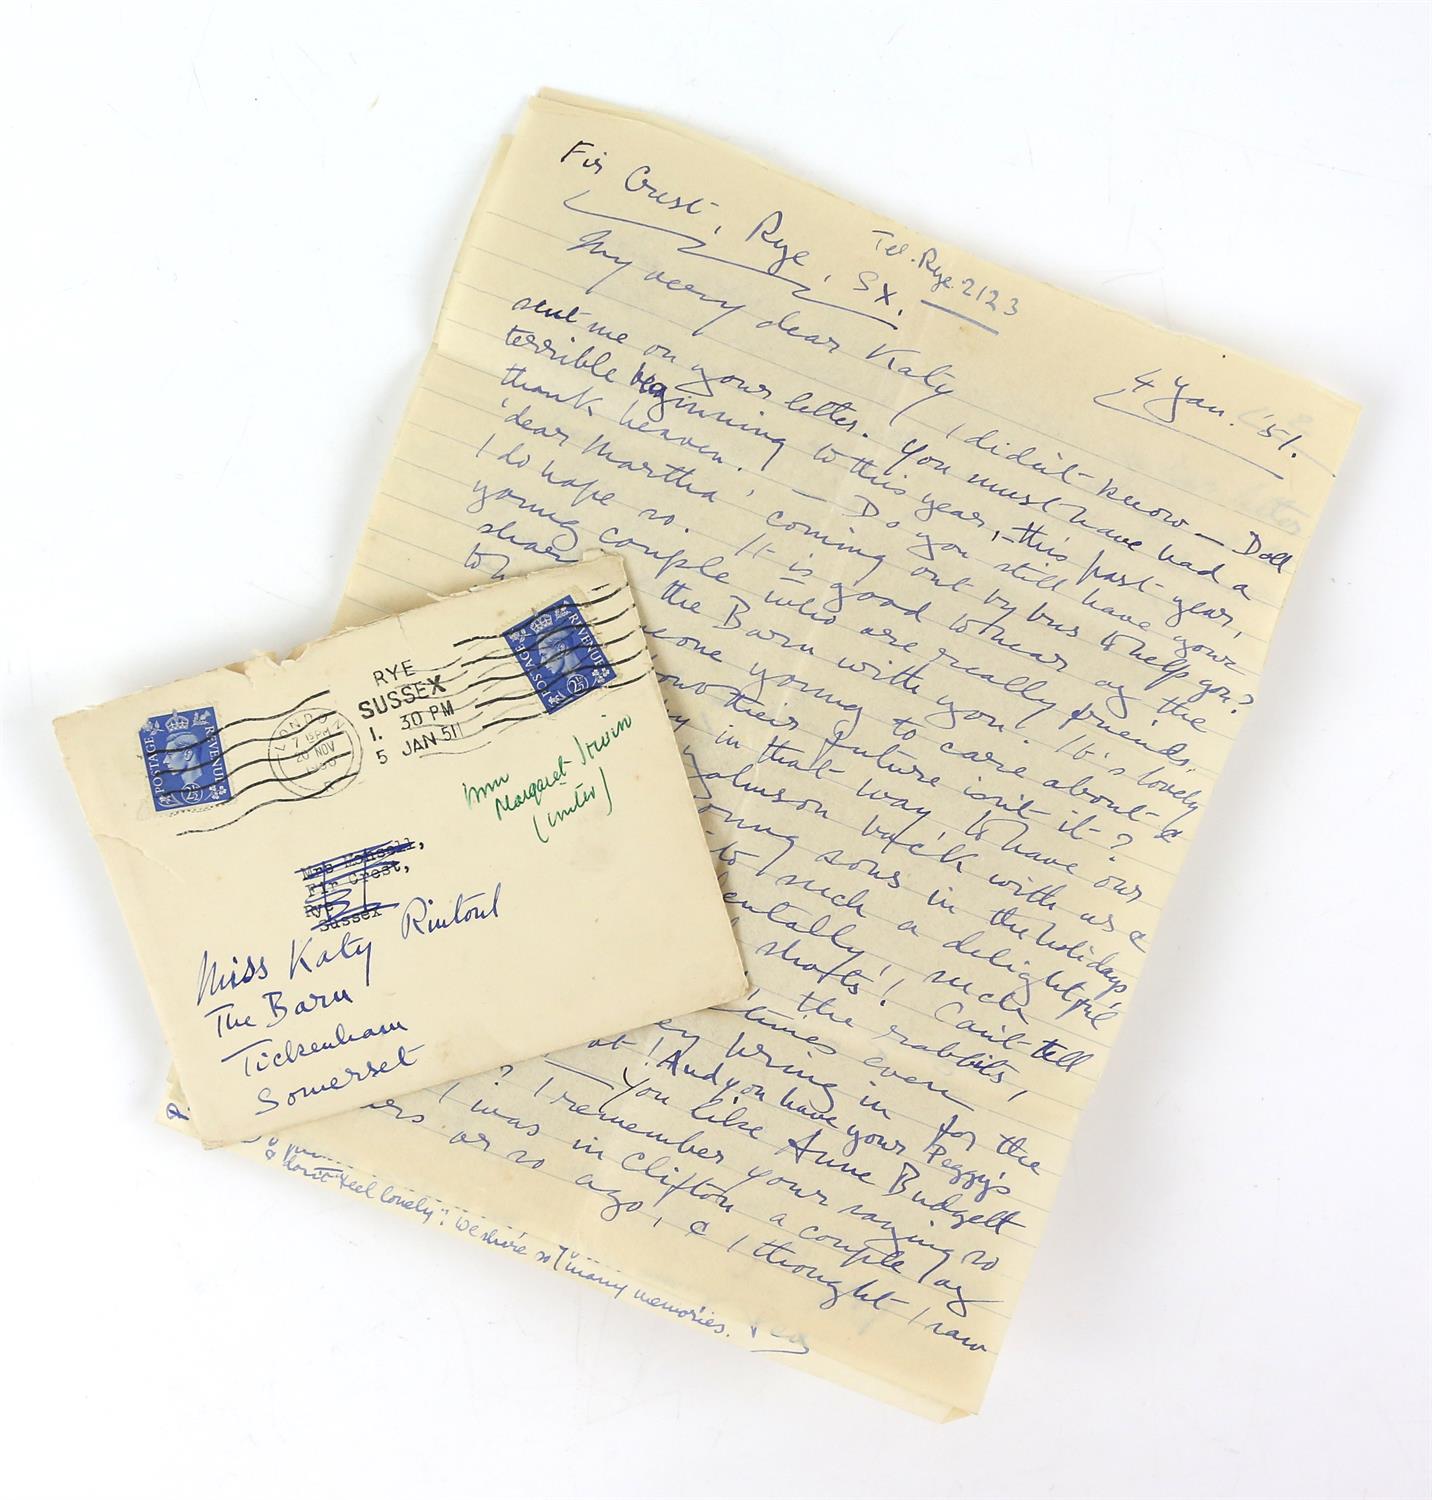 Fir Crest, Rye, Sx.
Tel. Rye 2123
4 Jan. '51.
My very dear Katy
I didn't know — Doll
sent me on your letter. You must have had a
terrible beginning to this year, – this past year,
thank heaven. — Do you still have your
'dear Martha' coming out by bus to help you?
I do hope so. It is good to hear of the
young couple who are really friends
share the Barn with you. It's lovely
to h someone young to care about &
their future isn't it?
in that way, to have our
Johnson back with us &
young sons in the holidays
to such a delightful
such
shafts! Can't tell
the rabbits,
times even
bring in for the
at! And you have your Peggy's
? You like Anne Budgett
I remember your saying so
I was in Clifton a couple of
or so ago, & I thought I saw
& don't feel lonely". We share so many memories.
POSTAGE REVENUE
2½D
LONDON
7 15 PM
20 NOV
1950
RYE
SUSSEX
1. 30 PM
5 JAN 51
POSTAGE REVENUE
2½D
from
Margaret Irwin
(writer)
Mrs Monsell,
Fir Crest,
Rye
Sussex
Miss Katy Rintoul
The Barn
Tickenham
Somerset